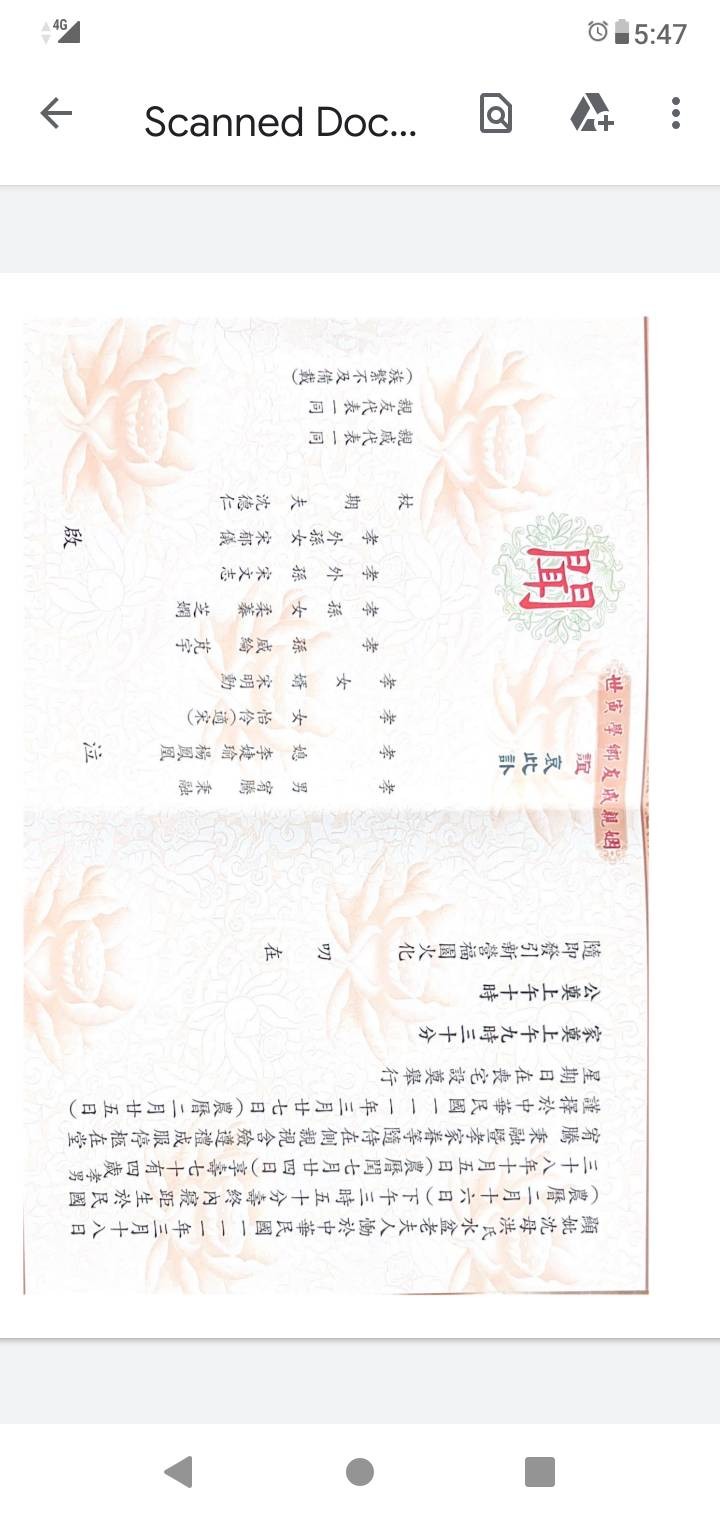 4G
5:47
Scanned Doc...
顯妣沈母洪氏水盆老夫人慟於中華民國一一一年三月十八日
(農曆二月十六日)下午三時五十分壽終內寢距生於民國
三十八年十月五日(農曆閏七月廿四日)享壽七十有四歲孝男
宥騰秉融暨孝家眷等隨侍在側親視含殮遵禮成服停柩在堂
謹擇於中華民國一一一年三月廿七日(農曆二月廿五日)
星期日在喪宅設奠舉行
家奠上午九時三十分
公奠上午十時
隨即發引新營福園火化 叨 在
世寅學鄉友戚親姻
誼
哀
此
訃
聞
孝男 宥騰 秉融
孝媳 李婕瑜 楊鳳凰
孝女 怡伶(適宋)
孝女婿 宋明勳
孝孫 威綸 芃宇
孝孫女 柔蓁 芝嫻
孝外孫 宋文志
孝外孫女 宋郁儀
杖期夫 沈德仁
泣 啟
親戚代表一同
親友代表一同
(族繁不及備載)